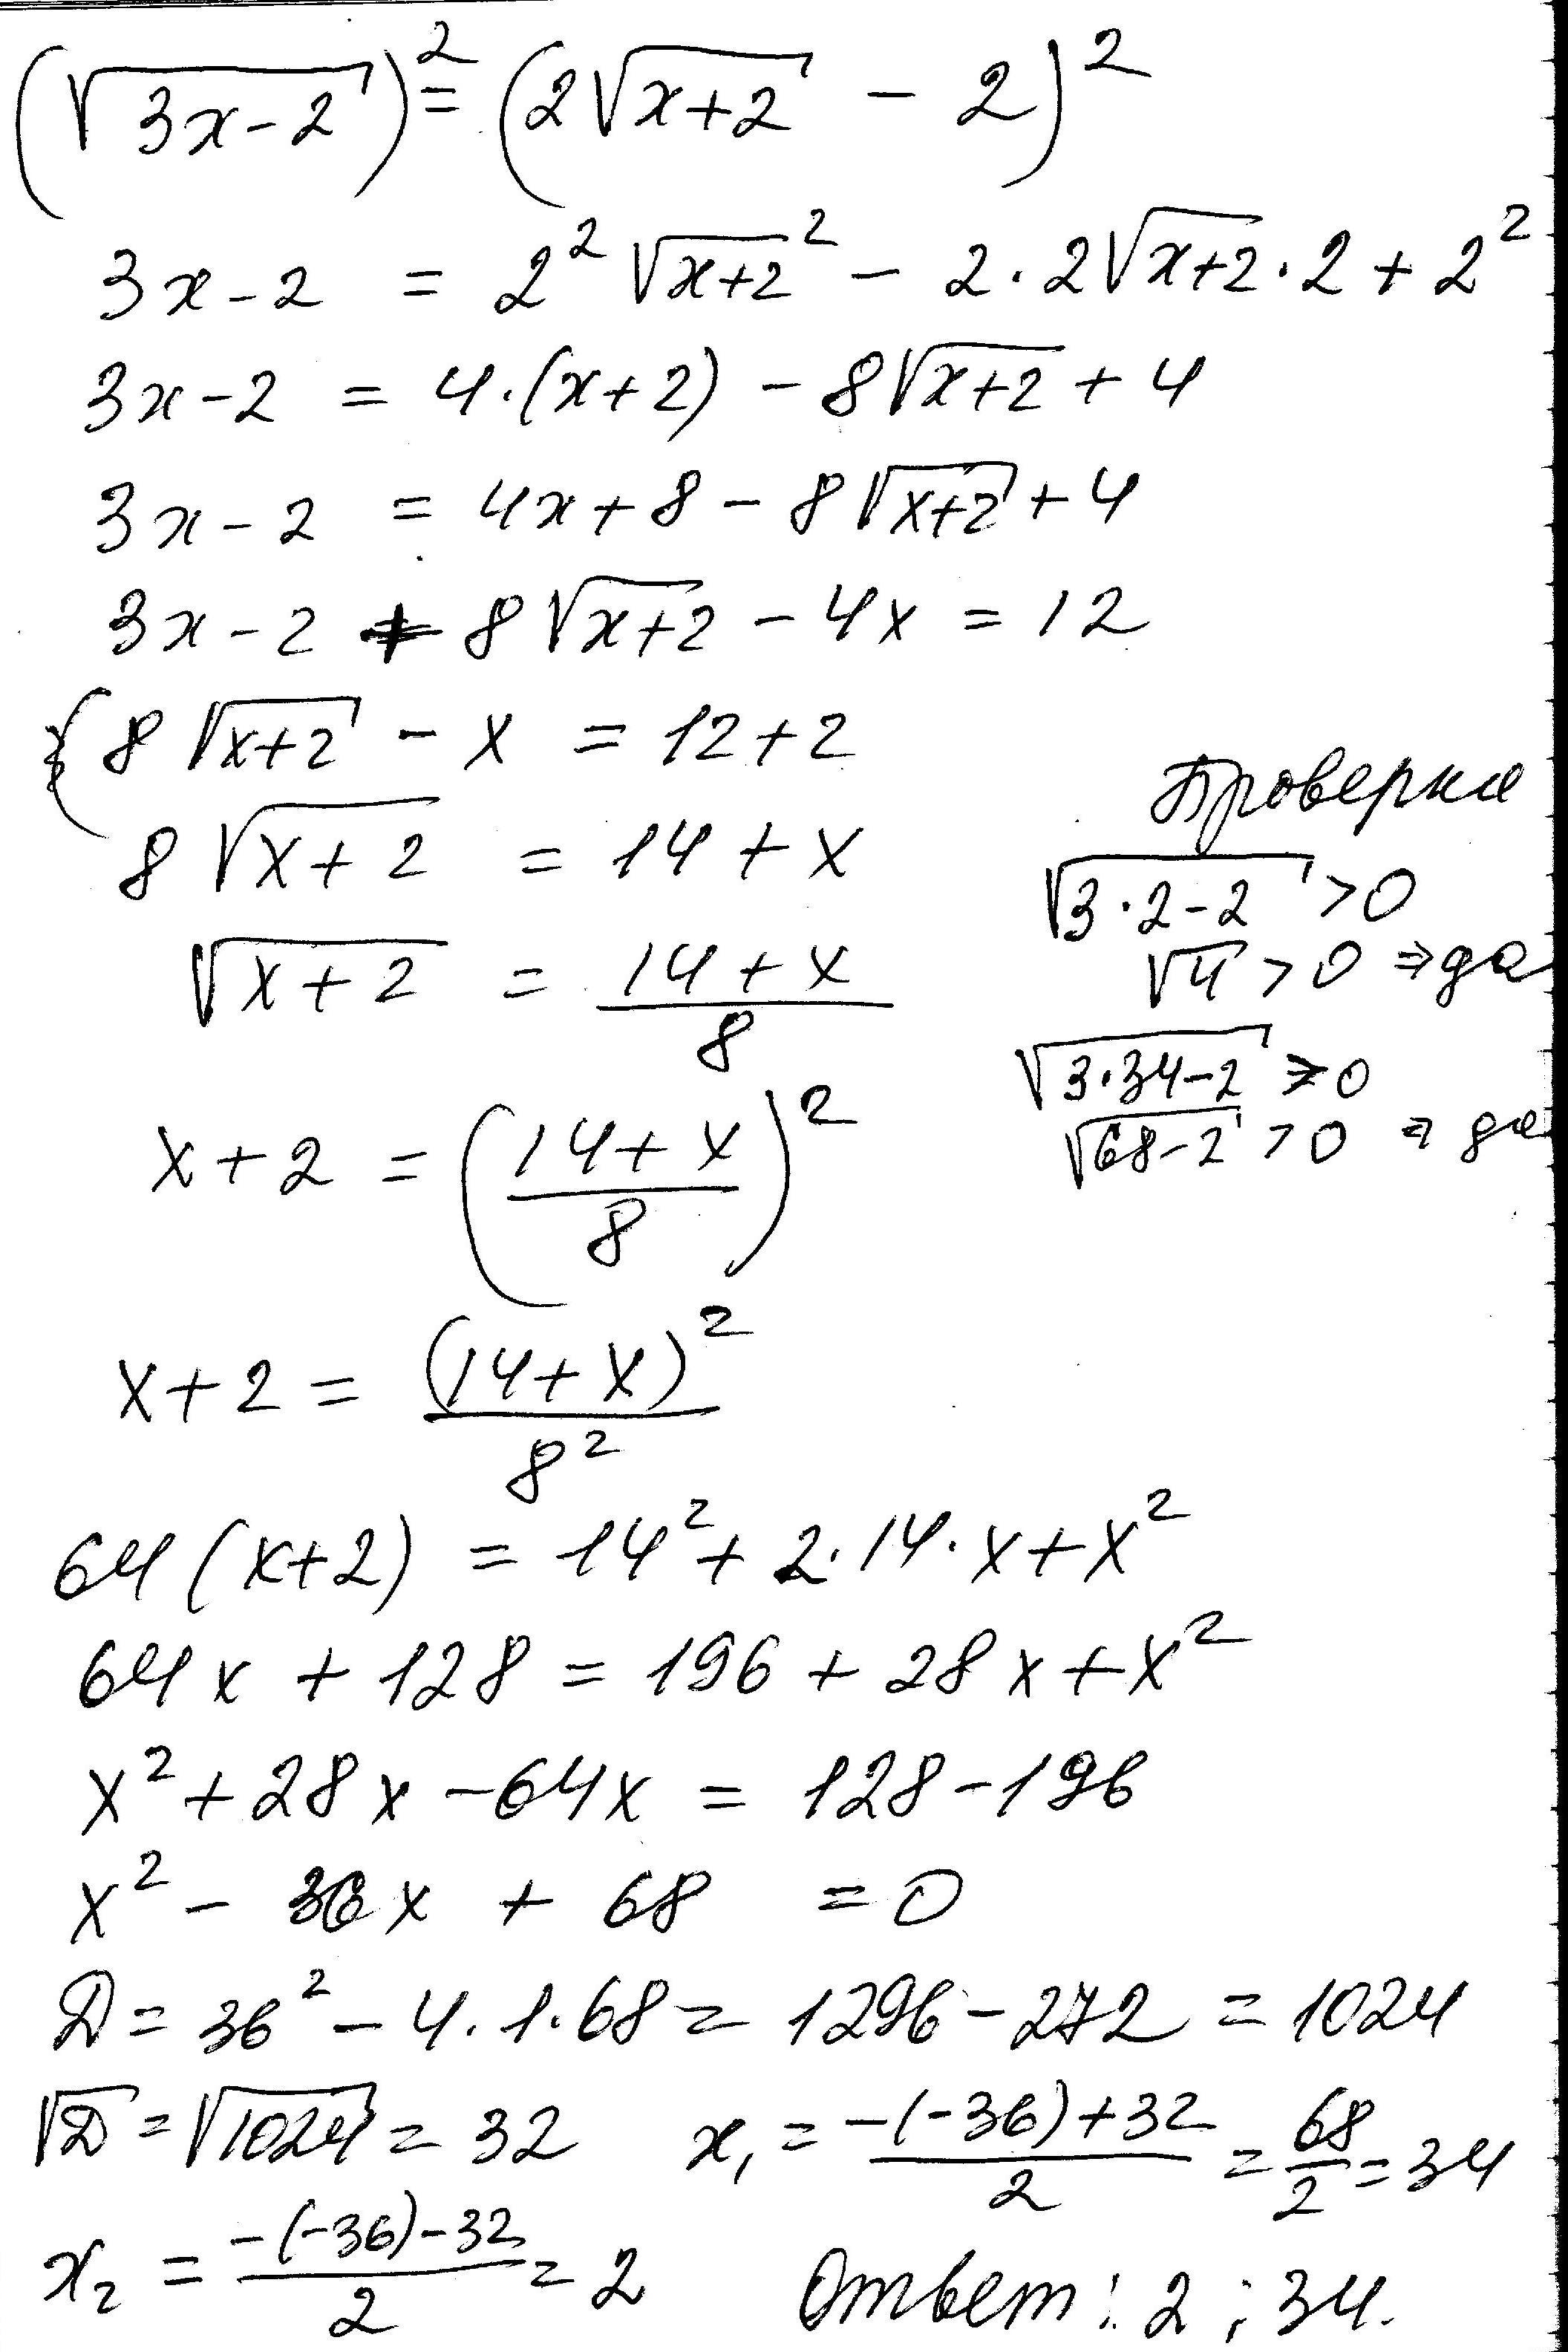 (√(3x-2))² = (2√(x+2) - 2)²
3x-2 = 2²√(x+2)² - 2·2√(x+2)·2+2²
3x-2 = 4·(x+2) - 8√(x+2) + 4
3x-2 = 4x+8 - 8√(x+2) + 4
3x-2 + 8√(x+2) - 4x = 12
8√(x+2) - x = 12+2
8√(x+2) = 14+x
√(x+2) = (14+x)/8
x+2 = ((14+x)/8)²
x+2 = (14+x)²/8²
64(x+2) = 14²+2·14·x+x²
64x+128 = 196+28x+x²
x²+28x-64x = 128-196
x² - 36x + 68 = 0
Д = 36² - 4·1·68 = 1296-272 = 1024
√Д = √1024 = 32 x₁ = (-(-36)+32)/2 = 68/2 = 34
x₂ = (-(-36)-32)/2 = 2
Ответ: 2; 34.
Проверка
√(3·2-2) >0
√4 >0 ⇒ да
√(3·34-2) >0
√(68-2) >0 ⇒ да